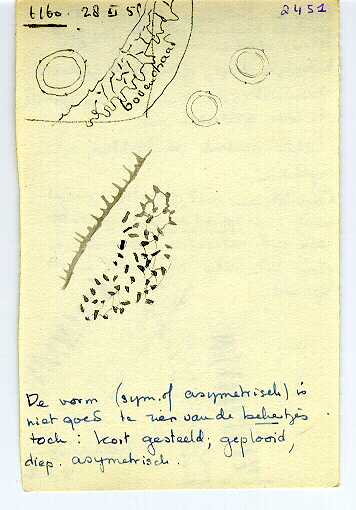 t160. 28 II 51 2451
bovenraad
De vorm (sym. of asymetrisch) is
niet goed te zien van de bekertjes
toch: kort gesteeld; geplooid,
diep. asymetrisch.